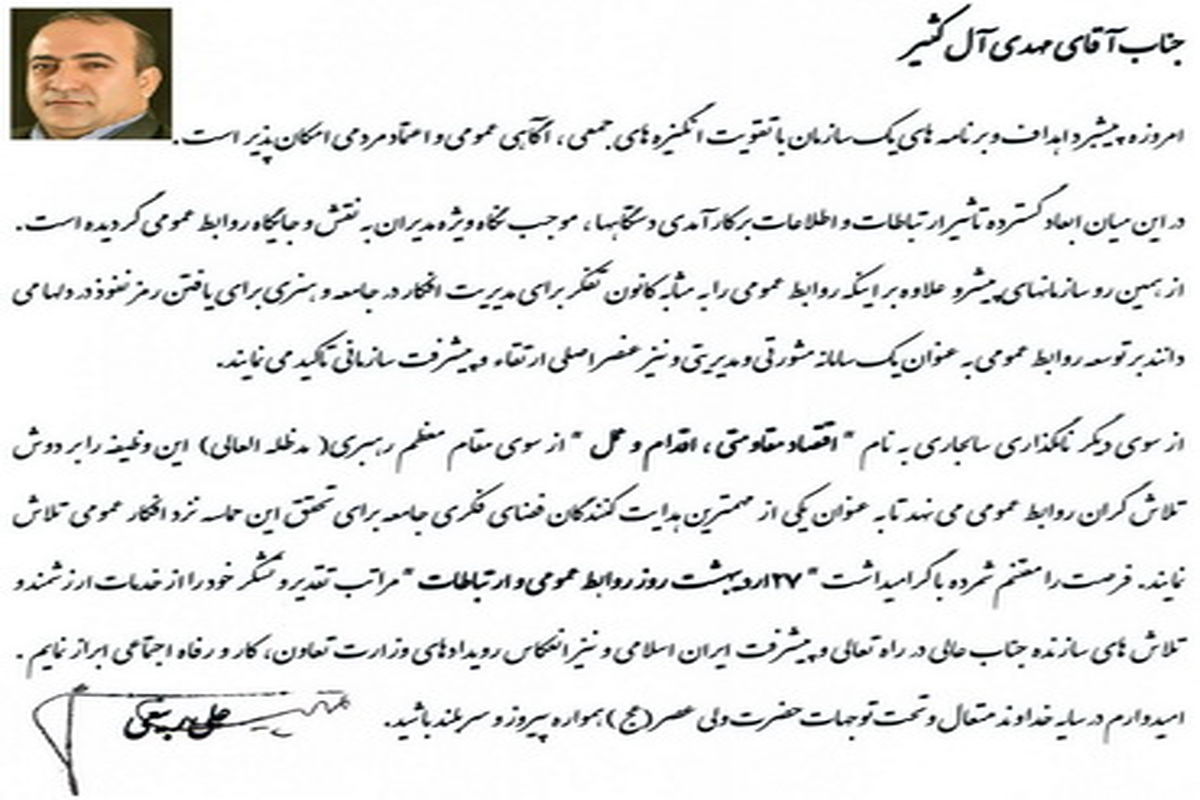 جناب آقای مهدی آل کثیر
امروزه پیشبرد اهداف و برنامه های یک سازمان با تقویت انگیزه های جمعی ، آگاهی عمومی و اعتماد مردمی امکان پذیر است .
در این میان ابعاد گسترده تأثیر ارتباطات و اطلاعات بر کارآمدی دستگاهها ، موجب نگاه ویژه مدیران به نقش و جایگاه روابط عمومی گردیده است .
از همین رو سازمانهای پیشرو علاوه بر اینکه روابط عمومی را به مثابه کانون تفکر برای مدیریت افکار در جامعه و هنری برای یافتن رمز نفوذ در دلها می
دانند بر توسعه روابط عمومی به عنوان یک سامانه مشورتی و مدیریتی و نیز عنصر اصلی ارتقاء و پیشرفت سازمانی تاکید می نمایند.
از سوی دیگر نامگذاری سالجاری به نام " اقتصاد مقاومتی ، اقدام و عمل " از سوی مقام معظم رهبری( مدظله العالی) این وظیفه را بر دوش
تلاش گران روابط عمومی می نهد تا به عنوان یکی از مهمترین هدایت کنندگان فضای فکری جامعه برای تحقق این حماسه نزد افکار عمومی تلاش
نمایند. فرصت را مغتنم شمرده با گرامیداشت " ۲۷ اردیبهشت روز روابط عمومی و ارتباطات " مراتب تقدیر و تشکر خود را از خدمات ارزشمند و
تلاش های سازنده جناب عالی در راه تعالی و پیشرفت ایران اسلامی و نیز انعکاس رویدادهای وزارت تعاون، کار و رفاه اجتماعی ابراز نمایم .
امیدوارم در سایه خداوند متعال و تحت توجهات حضرت ولی عصر (عج) همواره پیروز و سربلند باشید.
علی ربیعی